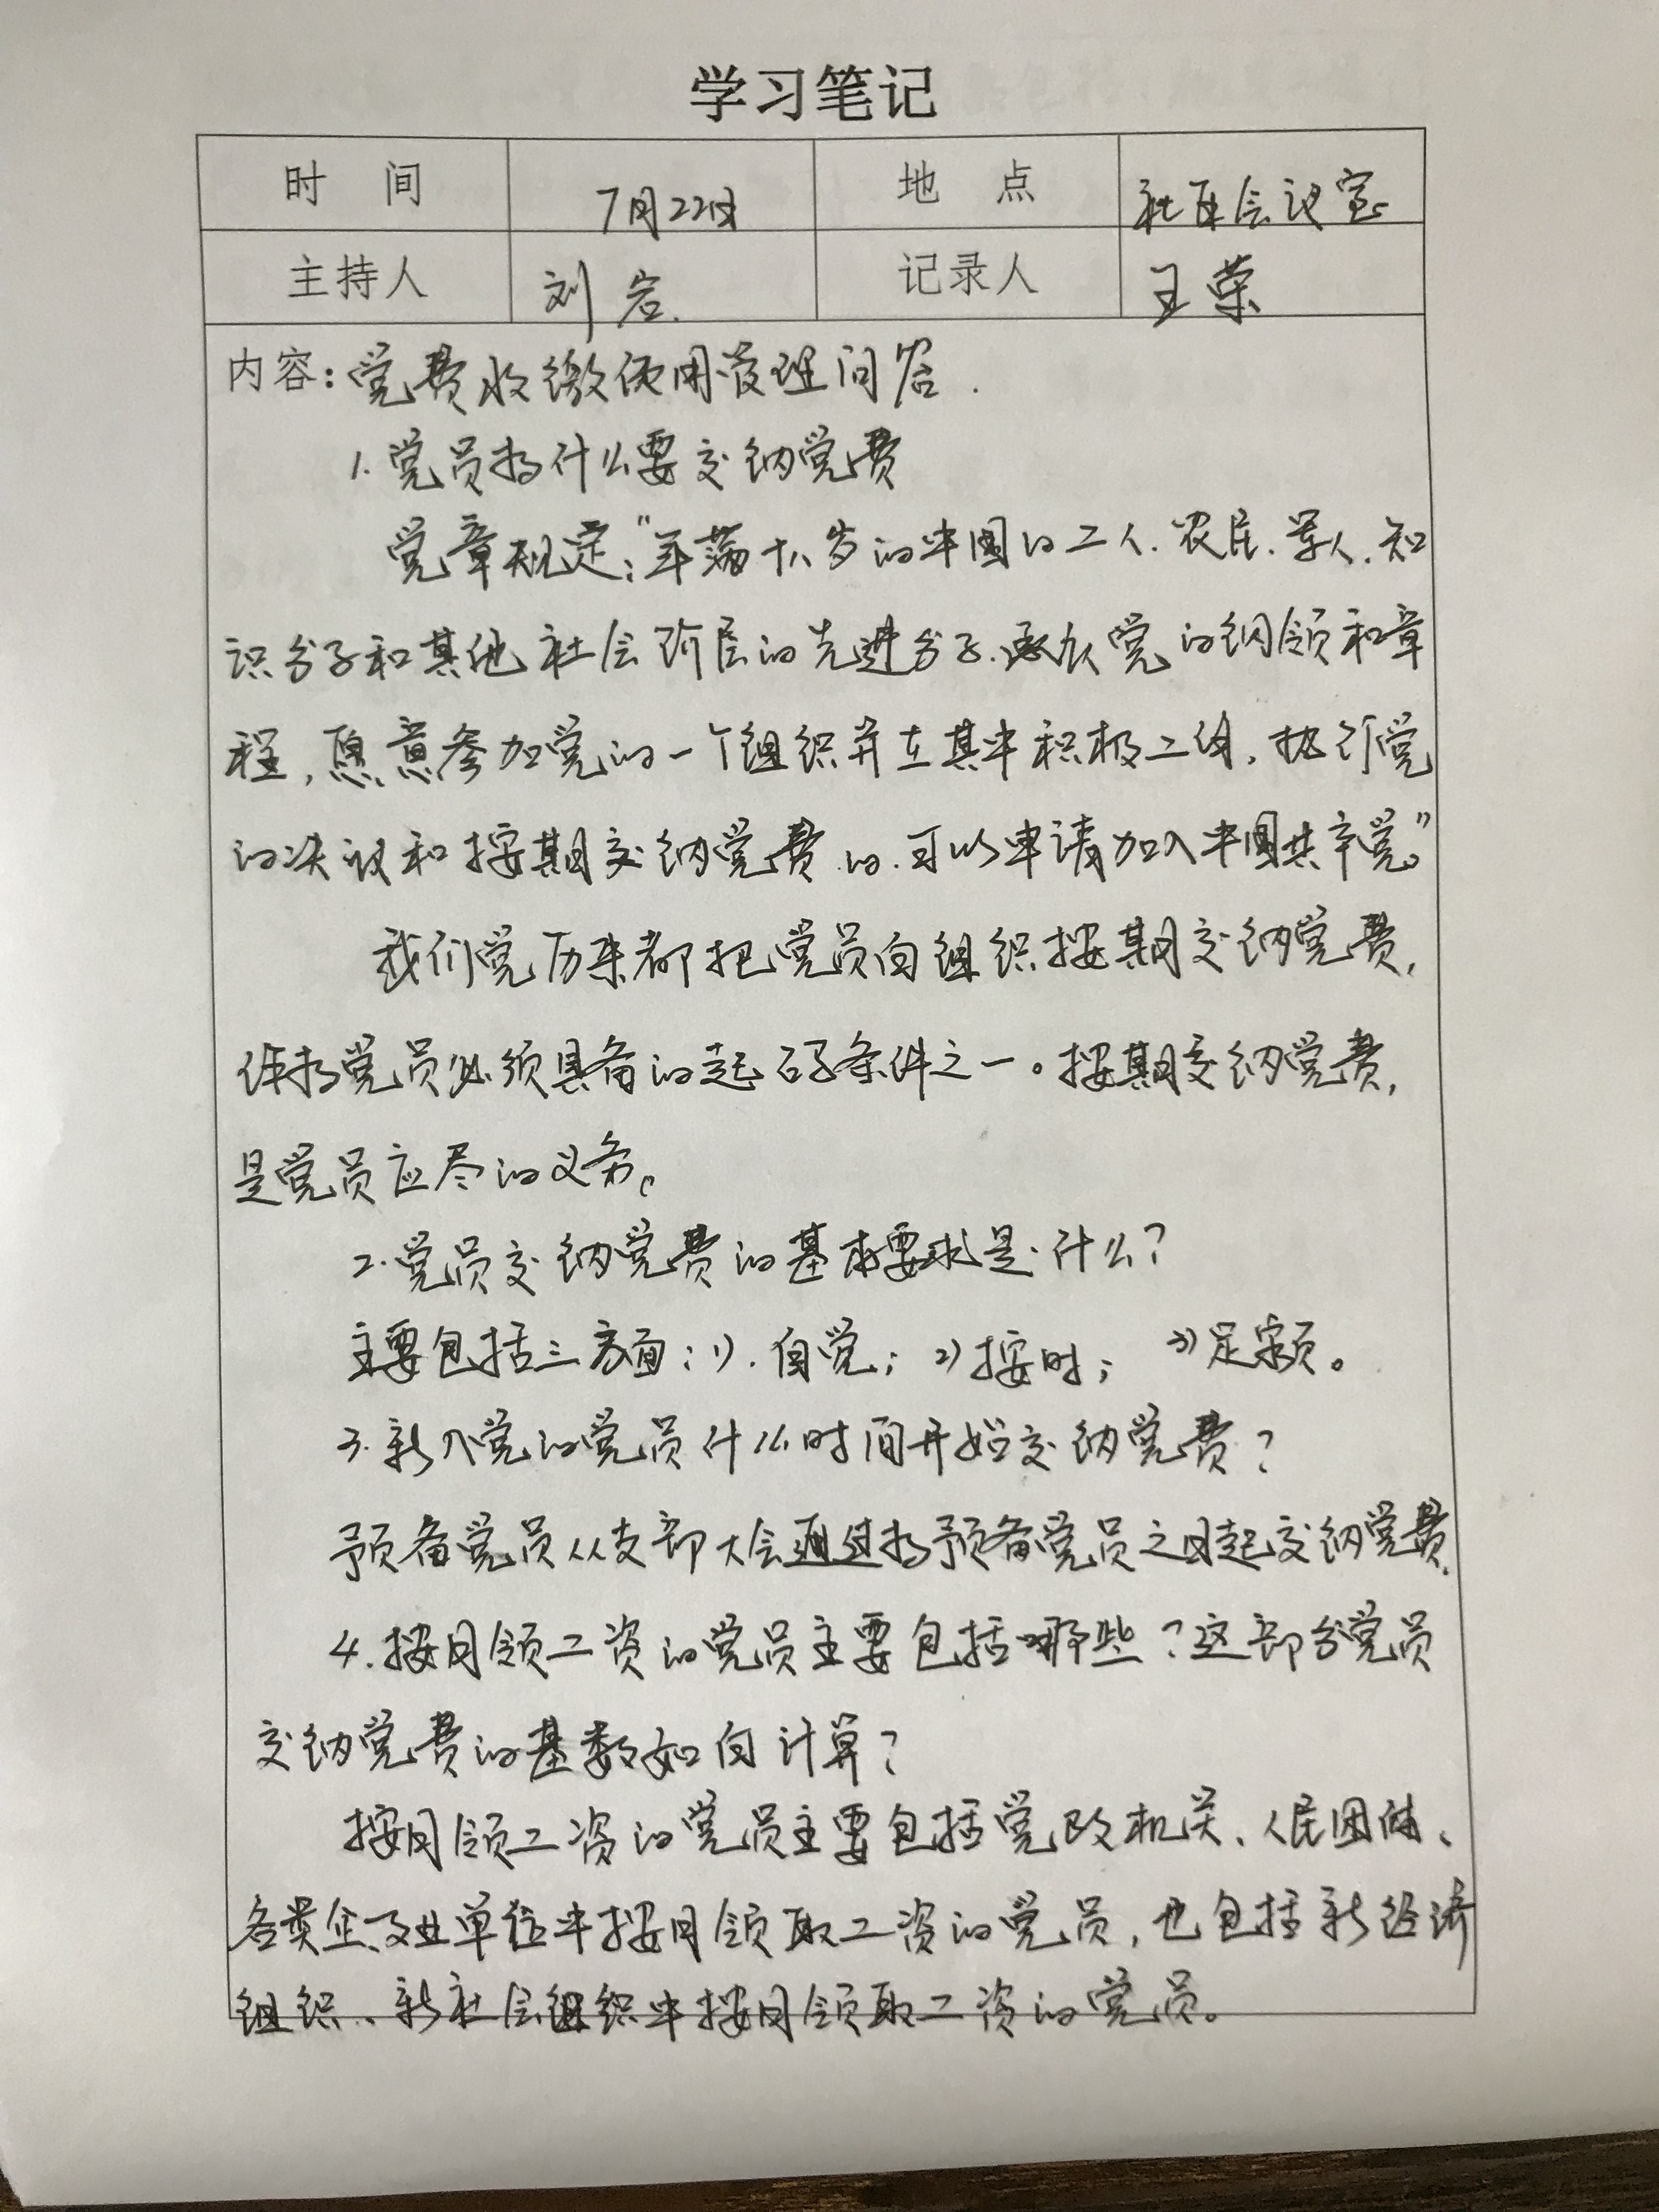 学习笔记
时 间 7月22日 地 点 社区会议室
主持人 刘岩. 记录人 王荣
内容:党费收缴使用管理问答.
1. 党员为什么要交纳党费
党章规定:"年满十八岁的中国的工人.农民.军人.知
识分子和其他社会阶层的先进分子.承认党的纲领和章
程,愿意参加党的一个组织并在其中积极工作,执行党
的决议和按期交纳党费的.可以申请加入中国共产党。"
我们党历来都把党员向组织按期交纳党费,
作为党员必须具备的起码条件之一。按期交纳党费,
是党员应尽的义务。
2.党员交纳党费的基本要求是什么?
主要包括三方面:1).自觉;2)按时; 3)足额。
3.新入党的党员什么时间开始交纳党费?
预备党员从支部大会通过为预备党员之日起交纳党费.
4.按月领工资的党员主要包括哪些?这部分党员
交纳党费的基数如何计算?
按月领工资的党员主要包括党政机关、人民团体、
各类企、事业单位中按月领取工资的党员,也包括新经济
组织、新社会组织中按月领取工资的党员。